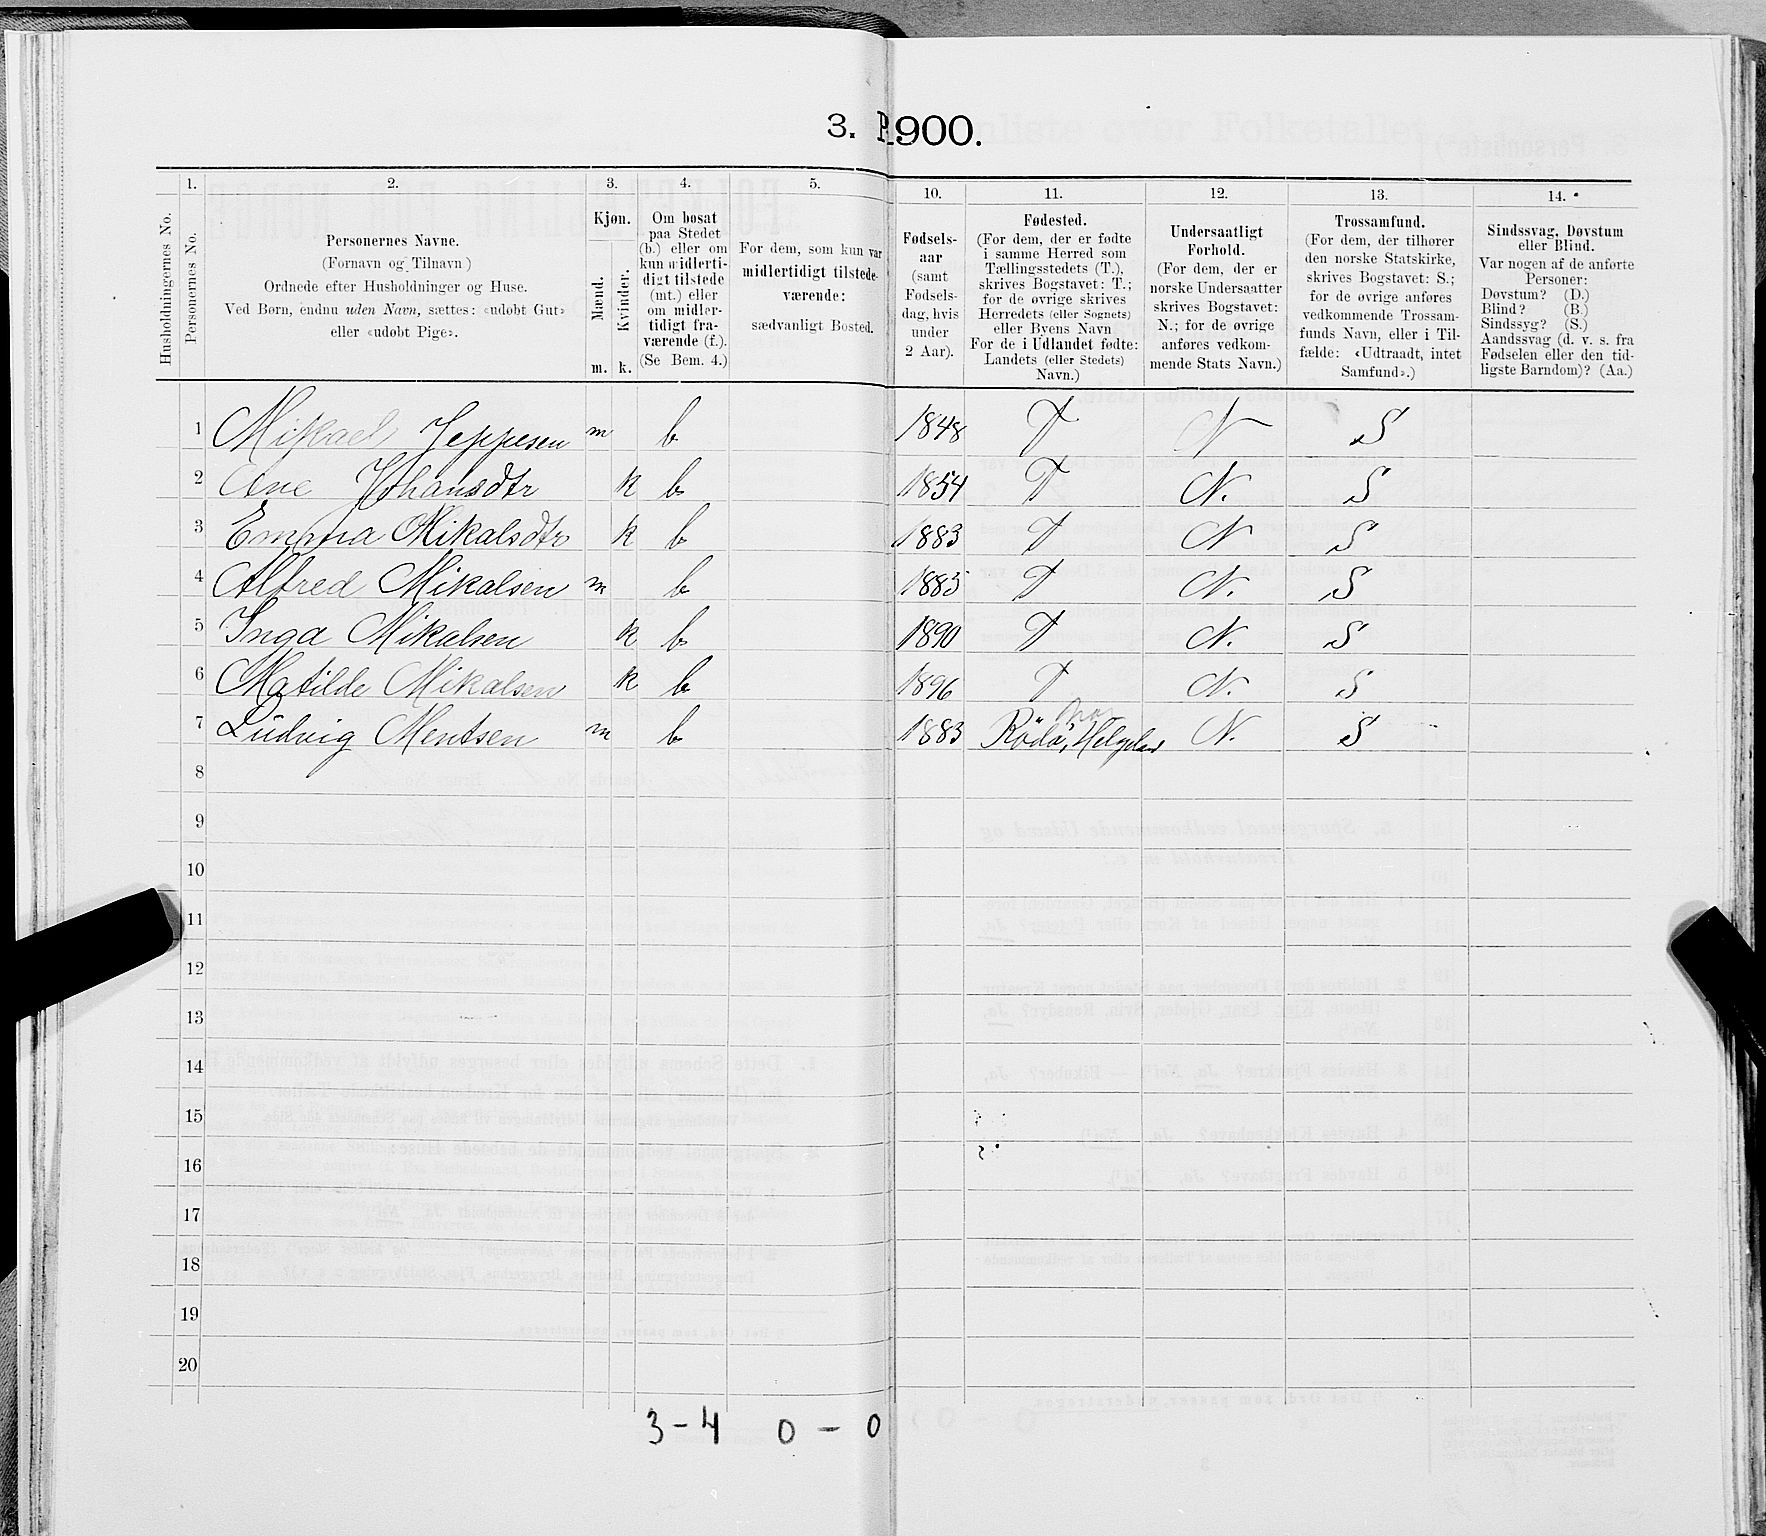 3. P 1900.
1. 2. 3. 4. 5. 10. 11. 12. 13. 14.
Husholdningernes No.
Personernes No.
Personernes Navne.
(Fornavn og Tilnavn)
Ordnede efter Husholdninger og Huse.
Ved Børn, endnu uden Navn, sættes: «udøbt Gut»
eller «udøbt Pige».
Kjøn.
Mænd.
Kvinder.
m. k.
Om bosat
paa Stedet
(b.) eller om
kun midlerti-
digt tilstede
(mt.) eller
om midler-
tidigt fra-
værende (f.).
(Se Bem. 4.)
For dem, som kun var
midlertidigt tilstede-
værende:
sædvanligt Bosted.
Fødsels-
aar
(samt
Fødsels-
dag, hvis
under
2 Aar).
Fødested.
(For dem, der er fødte
i samme Herred som
Tællingsstedets (T.),
skrives Bogstavet: T.;
for de øvrige skrives
Herredets (eller Sognets)
eller Byens Navn
For de i Udlandet fødte:
Landets (eller Stedets)
Navn.)
Undersaatligt
Forhold.
(For dem, der er
norske Undersaatter
skrives Bogstavet:
N.; for de øvrige
anføres vedkom-
mende Stats Navn.)
Trossamfund.
(For dem, der tilhører
den norske Statskirke,
skrives Bogstavet: S.;
for de øvrige anføres
vedkommende Trossam-
funds Navn, eller i Til-
fælde: «Udtraadt, intet
Samfund».)
Sindssvag, Døvstum
eller Blind.
Var nogen af de anførte
Personer:
Døvstum? (D.)
Blind? (B.)
Sindssyg? (S.)
Aandssvag (d. v. s. fra
Fødselen eller den tid-
ligste Barndom)? (Aa.)
1 Mikael Jeppesen m b 1848 T N S
2 Ane Johansdtr k b 1854 T N. S
3 Emma Mikalsdtr k b 1883 T N S
4 Alfred Mikalsen m b 1885 T N. S
5 Inga Mikalsen k b 1890 T N. S
6 Matilde Mikalsen k b 1896 T N. S
7 Ludvig Mentsen m b 1883 Rödö, Helgeland N. S
8
9
10
11
12
13
14
15
16
17
18
19
20
3 - 4 0 - 0